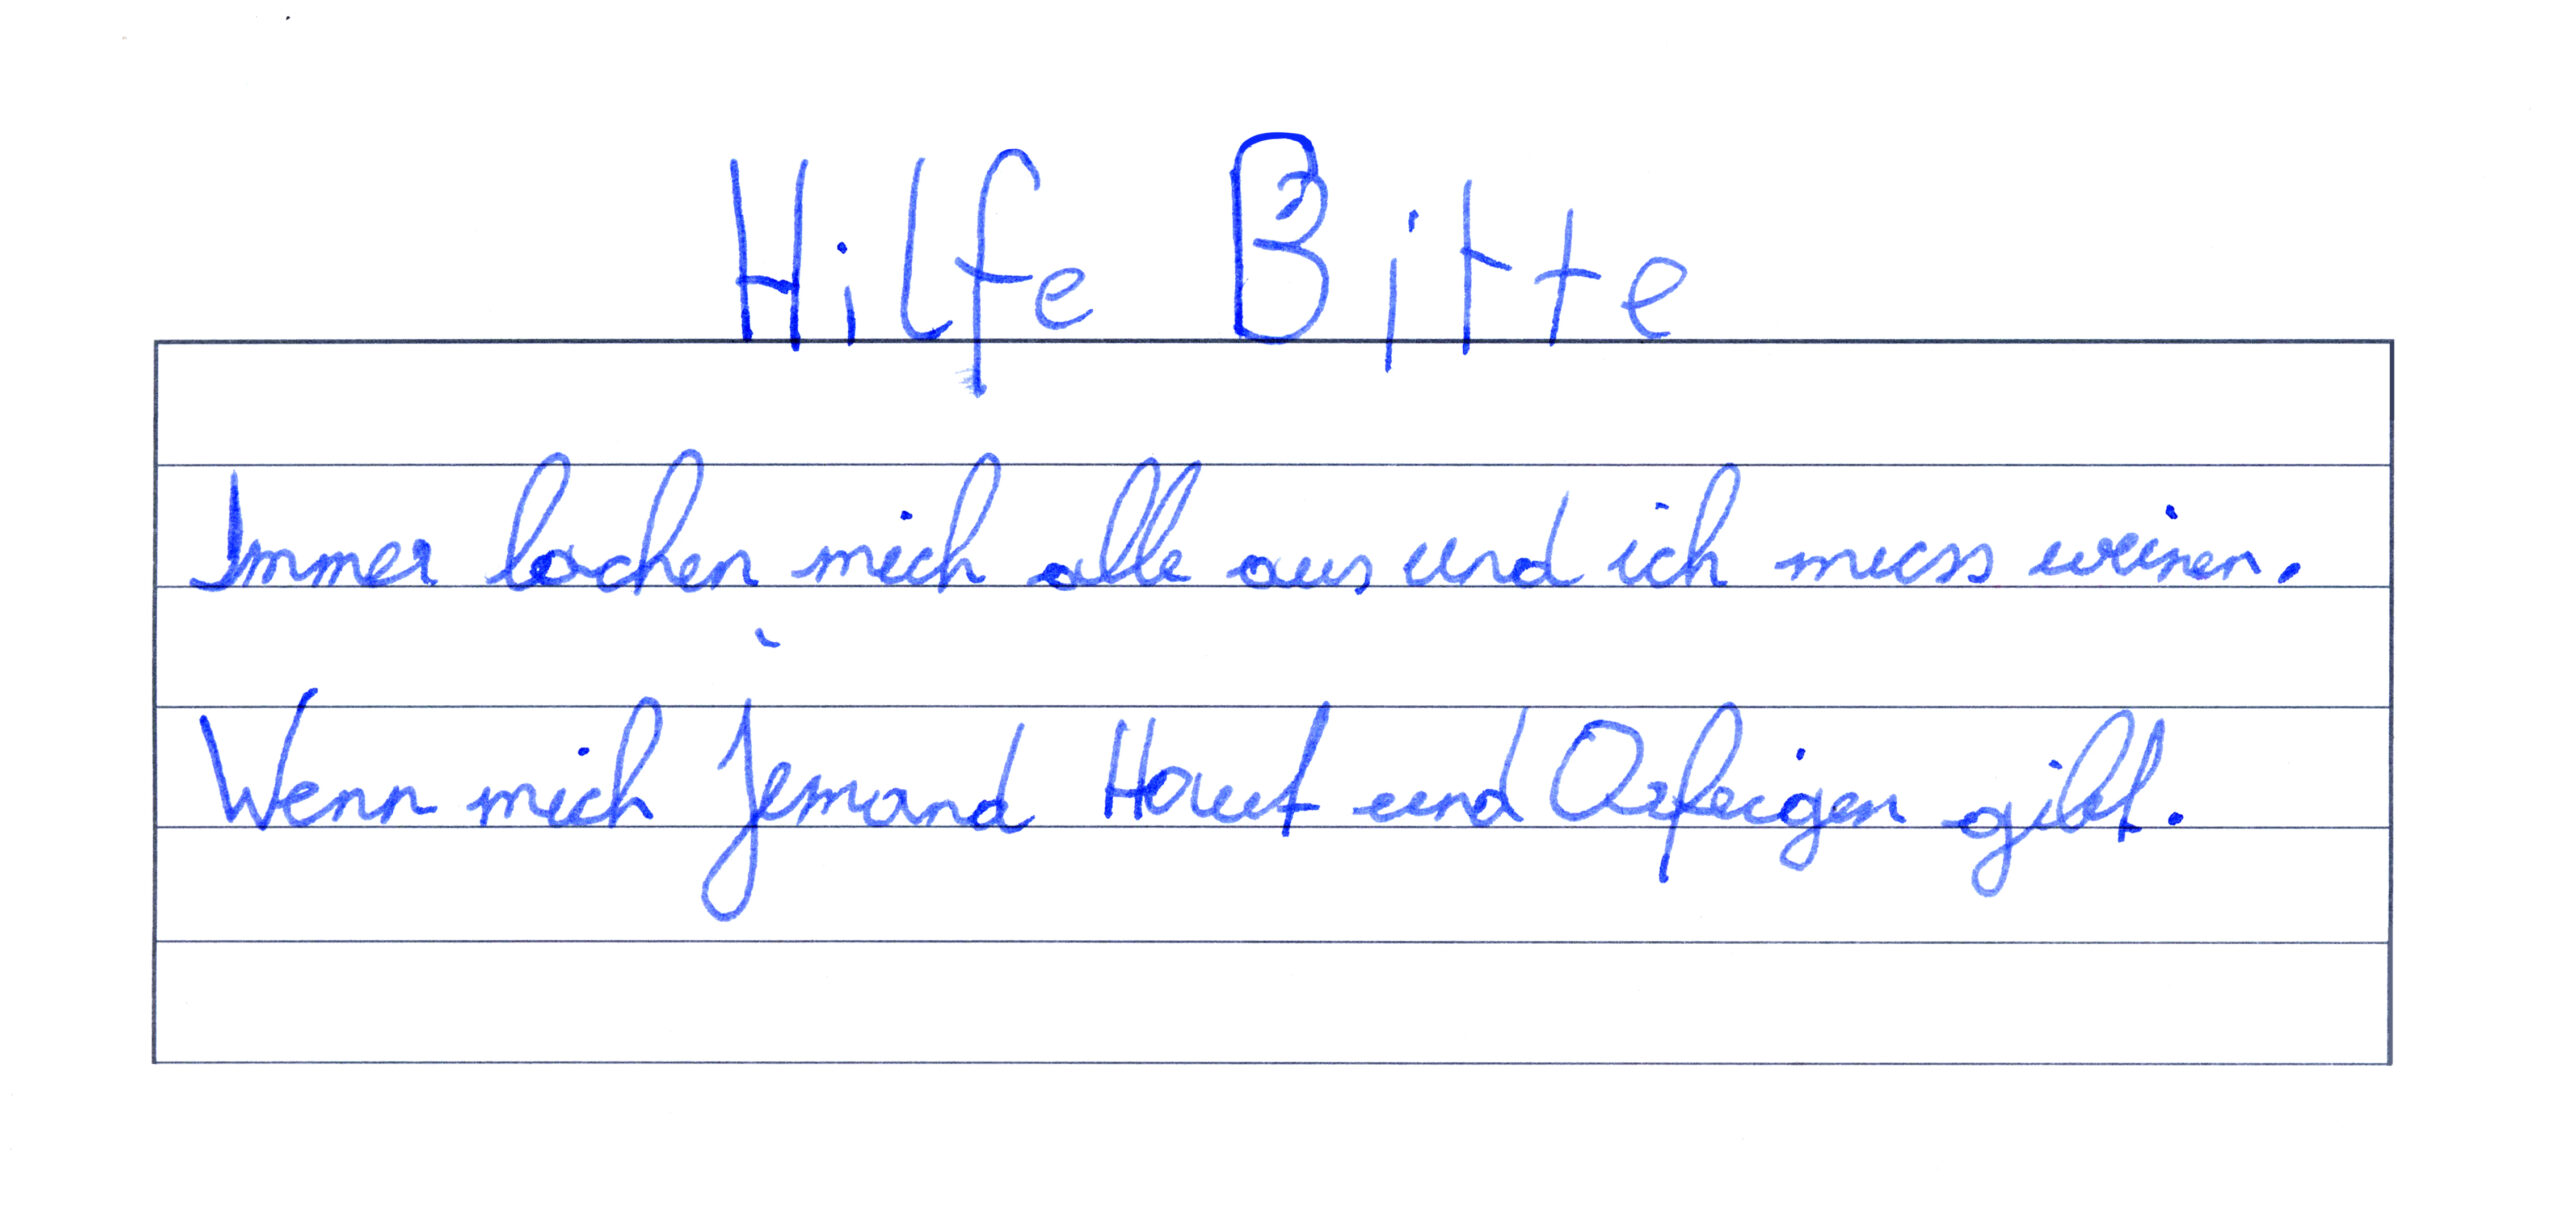 Hilfe Bitte
Immer lachen mich alle aus und ich muss weinen.
Wenn mich Jemand Haut und Orfeigen gibt.